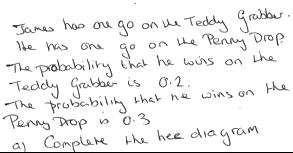 James has one go on the Teddy Grabber.
He has one go on the Penny Drop.
The probability that he wins on the
Teddy Grabber is 0.2.
The probability that he wins on the
Penny Drop is 0.3
a) Complete the tree diagram